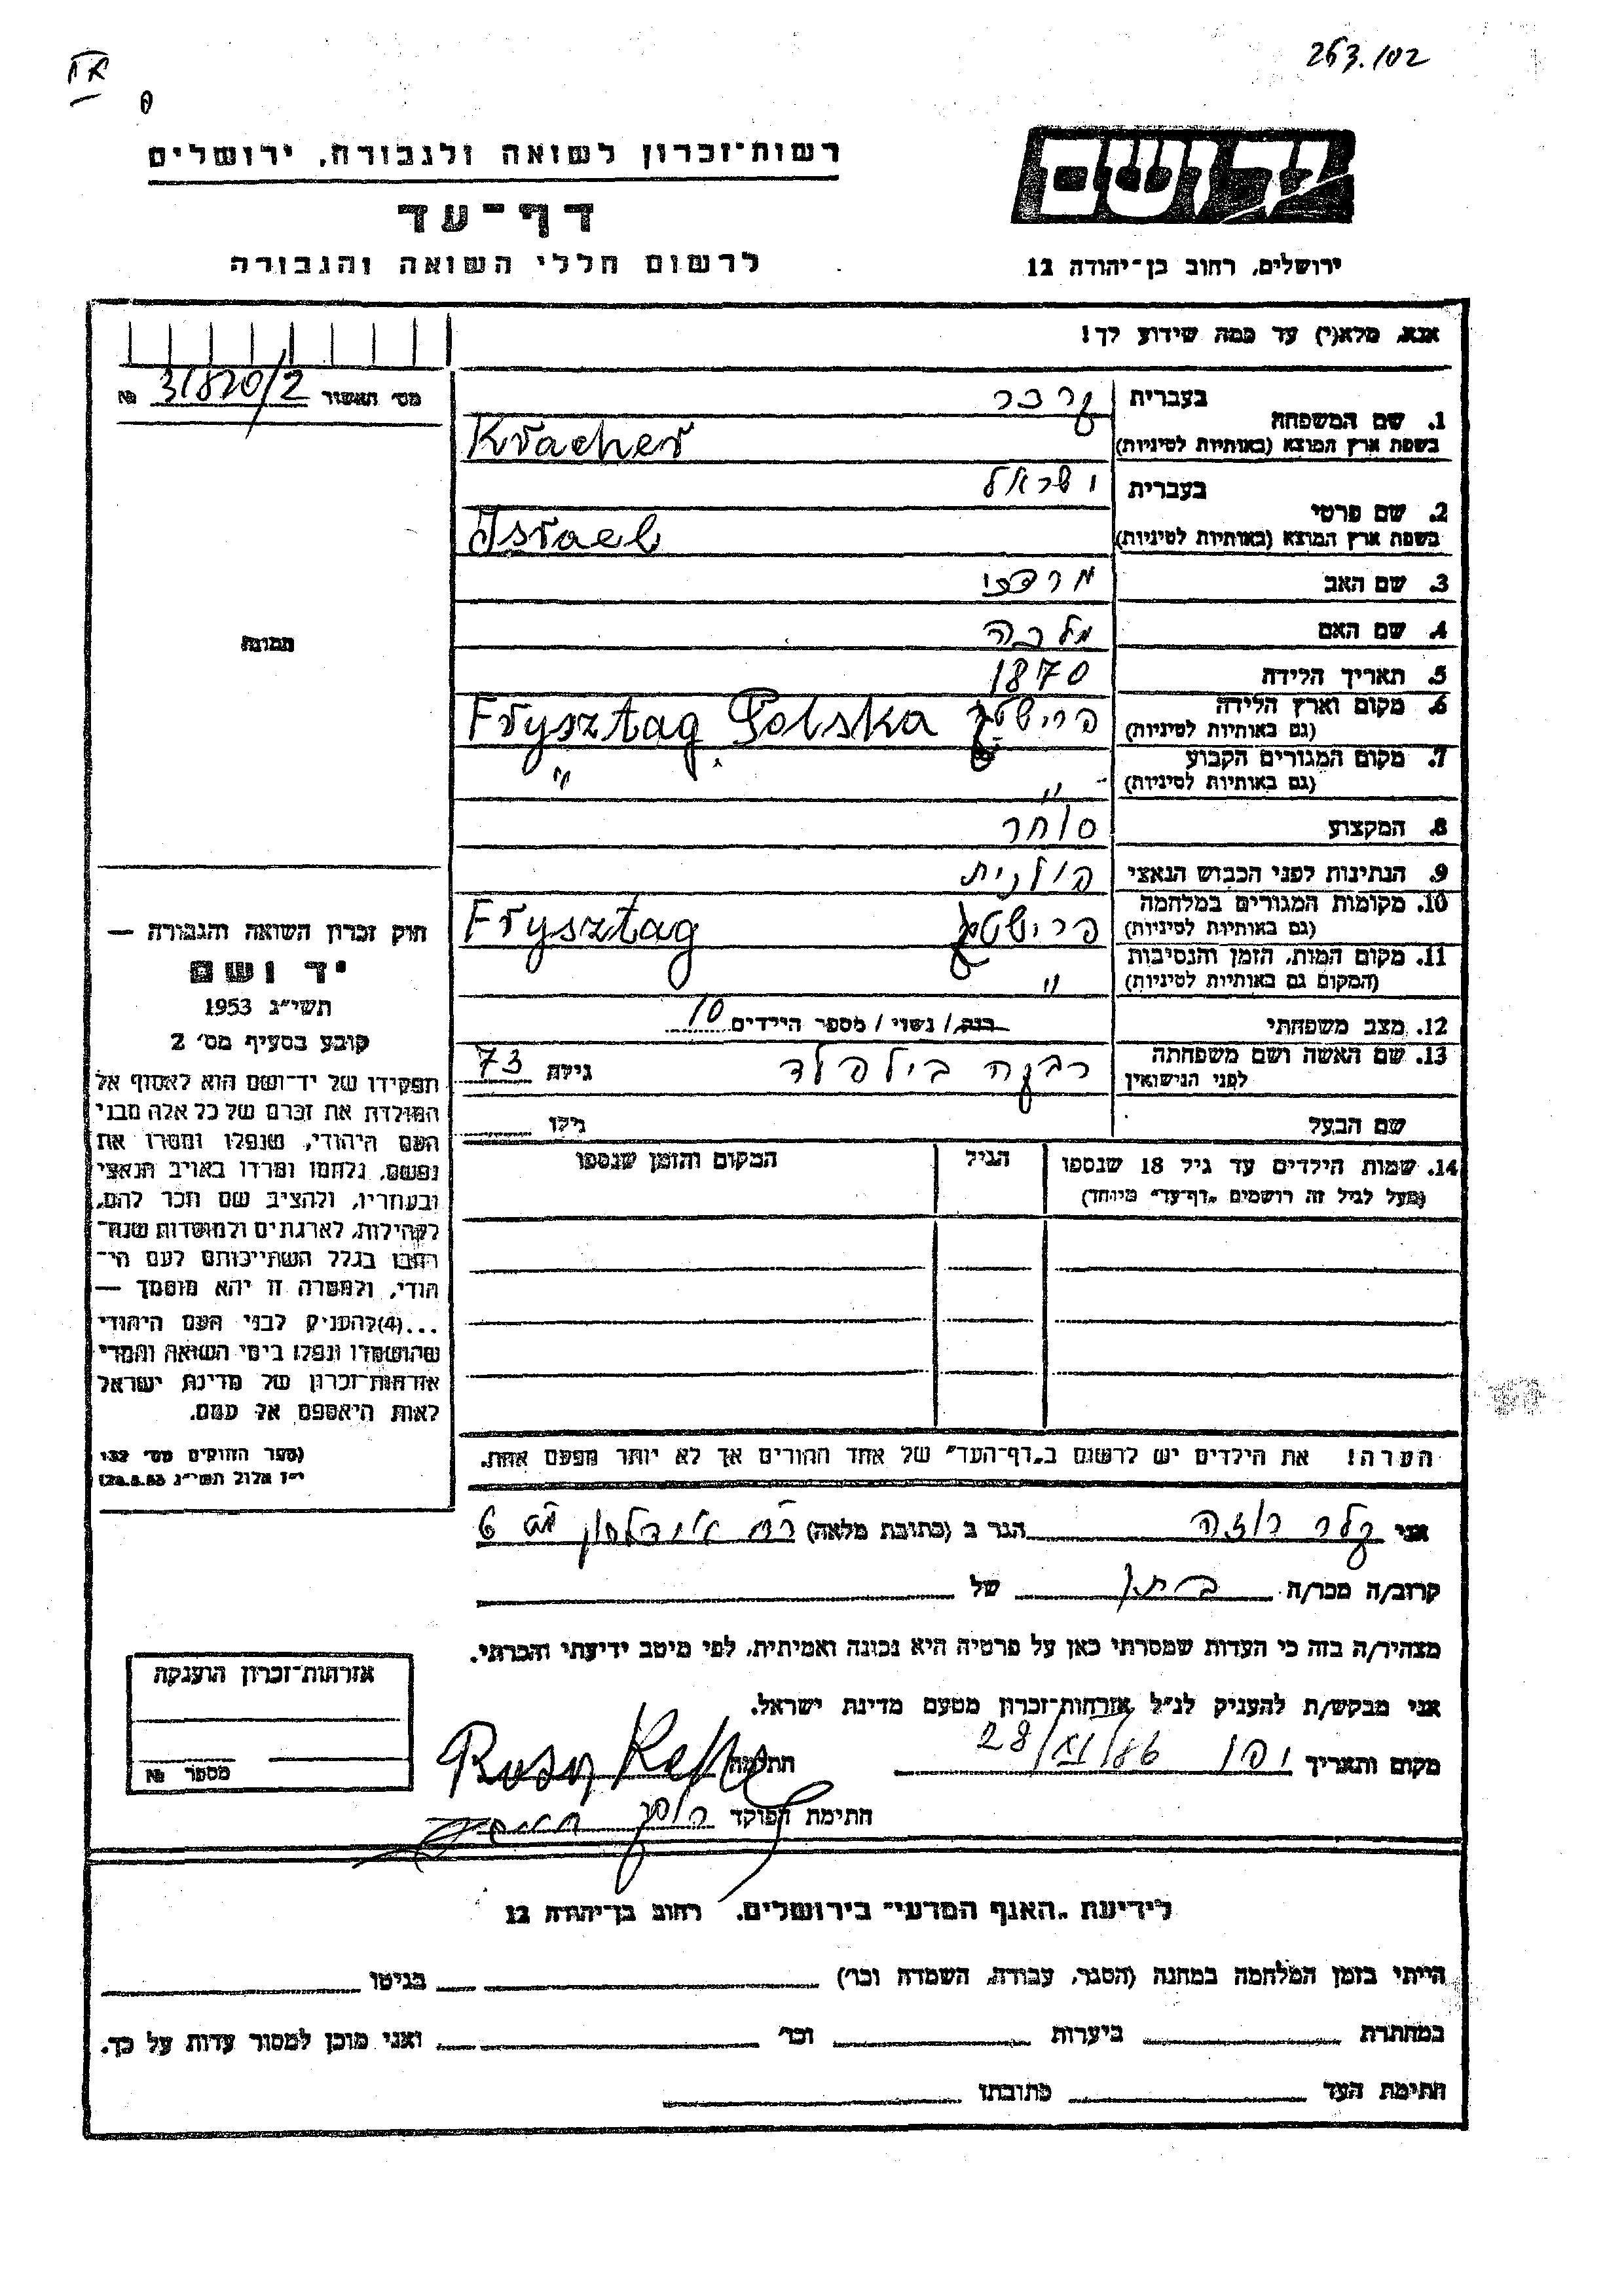 263.102
רשות־זכרון לשואה ולגבורה, ירושלים
יד ושם
דף־עד
לרשום חללי השואה והגבורה
ירושלים, רחוב בן־יהודה 12
אנא, מלא(י) עד כמה שידוע לך!
מס׳ תאשור 31820/2 №
1. שם המשפחה
בעברית קרכר
בשפת ארץ המוצא (באותיות לטיניות) Kracher
2. שם פרטי
בעברית ישראל
בשפת ארץ המוצא (באותיות לטיניות) Israel
3. שם האב מרדכי
4. שם האם מלכה
תמונה
5. תאריך הלידה 1870
6. מקום וארץ הלידה פרישטק Frysztag Polska
(גם באותיות לטיניות)
7. מקום המגורים הקבוע
(גם באותיות לטיניות) " "
8. המקצוע סוחר
9. הנתינות לפני הכבוש הנאצי פולנית
10. מקומות המגורים במלחמה
(גם באותיות לטיניות) פרישטק Frysztag
11. מקום המות, הזמן והנסיבות
(המקום גם באותיות לטיניות) "
12. מצב משפחתי רווק / נשוי / מספר הילדים 10
13. שם האשה ושם משפחתה
לפני הנישואין רבקה בילפלד גילה 73
שם הבעל גילו
14. שמות הילדים עד גיל 18 שנספו הגיל המקום והזמן שנספו
(מעל לגיל זה רושמים „דף־עד" מיוחד)
חוק זכרון השואה והגבורה —
יד ושם
תשי״ג 1953
קובע בסעיף מס׳ 2
תפקידו של יד־ושם הוא לאסוף אל
המולדת את זכרם של כל אלה מבני
העם היהודי, שנפלו ומסרו את
נפשם, נלחמו ומרדו באויב הנאצי
ובעוזריו, ולהציב שם וזכר להם,
לקהילות, לארגונים ולמוסדות שנח־
רבו בגלל השתייכותם לעם הי־
הודי, ולמטרה זו יהא מוסמך —
...(4)להעניק לבני העם היהודי
שהושמדו ונפלו בימי השואה והמרי
אזרחות־זכרון של מדינת ישראל
לאות היאספם אל עמם.
(ספר החוקים מס׳ 132
י״ז אלול תשי״ג 28.8.53)
הערה! את הילדים יש לרשום ב„דף־העד" של אחד ההורים אך לא יותר מפעם אחת.
אני קלר רוזה הגר ב (כתובת מלאה) רח אידלסון 6
קרוב/ה מכר/ה ביתו של
מצהיר/ה בזה כי העדות שמסרתי כאן על פרטיה היא נכונה ואמיתית, לפי מיטב ידיעתי והכרתי.
אני מבקש/ת להעניק לנ״ל אזרחות־זכרון מטעם מדינת ישראל.
מקום ותאריך יפו 28/XI/86 חתימה
חתימת הפוקד
אזרחות־זכרון הוענקה
מספר №
לידיעת „האגף המדעי" בירושלים, רחוב בן־יהודה 12
הייתי בזמן המלחמה במחנה (הסגר, עבודה, השמדה וכו׳) בגיטו
במחתרת ביערות וכו׳ ואני מוכן למסור עדות על כך.
חתימת העד כתובתו